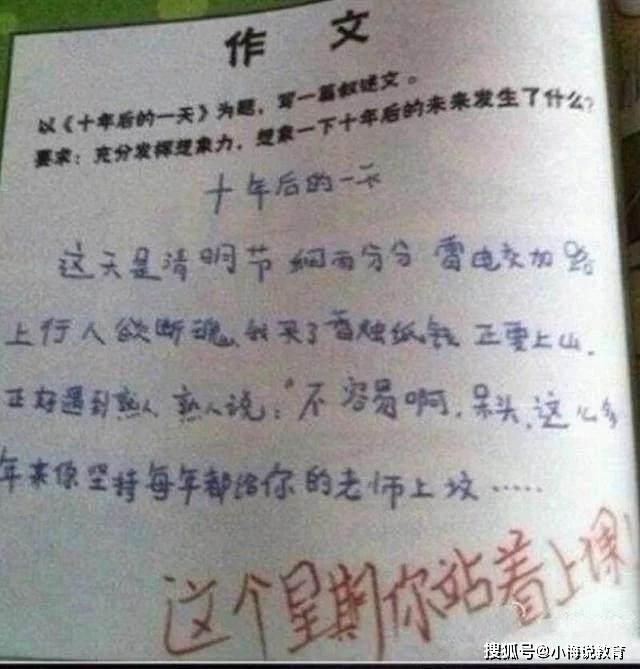 作 文
以《十年后的一天》为题，写一篇叙述文。
要求：充分发挥想象力，想象一下十年后的未来发生了什么？
十年后的一天
这天是清明节 细雨分分 雷电交加 路
上行人欲断魂、我买了香烛纸钱 正要上山．
正好遇到熟人 熟人说：“不容易啊，呆头，这么多
年来你坚持每年都给你的老师上坟……
这个星期你站着上课！
搜狐号@小梅说教育